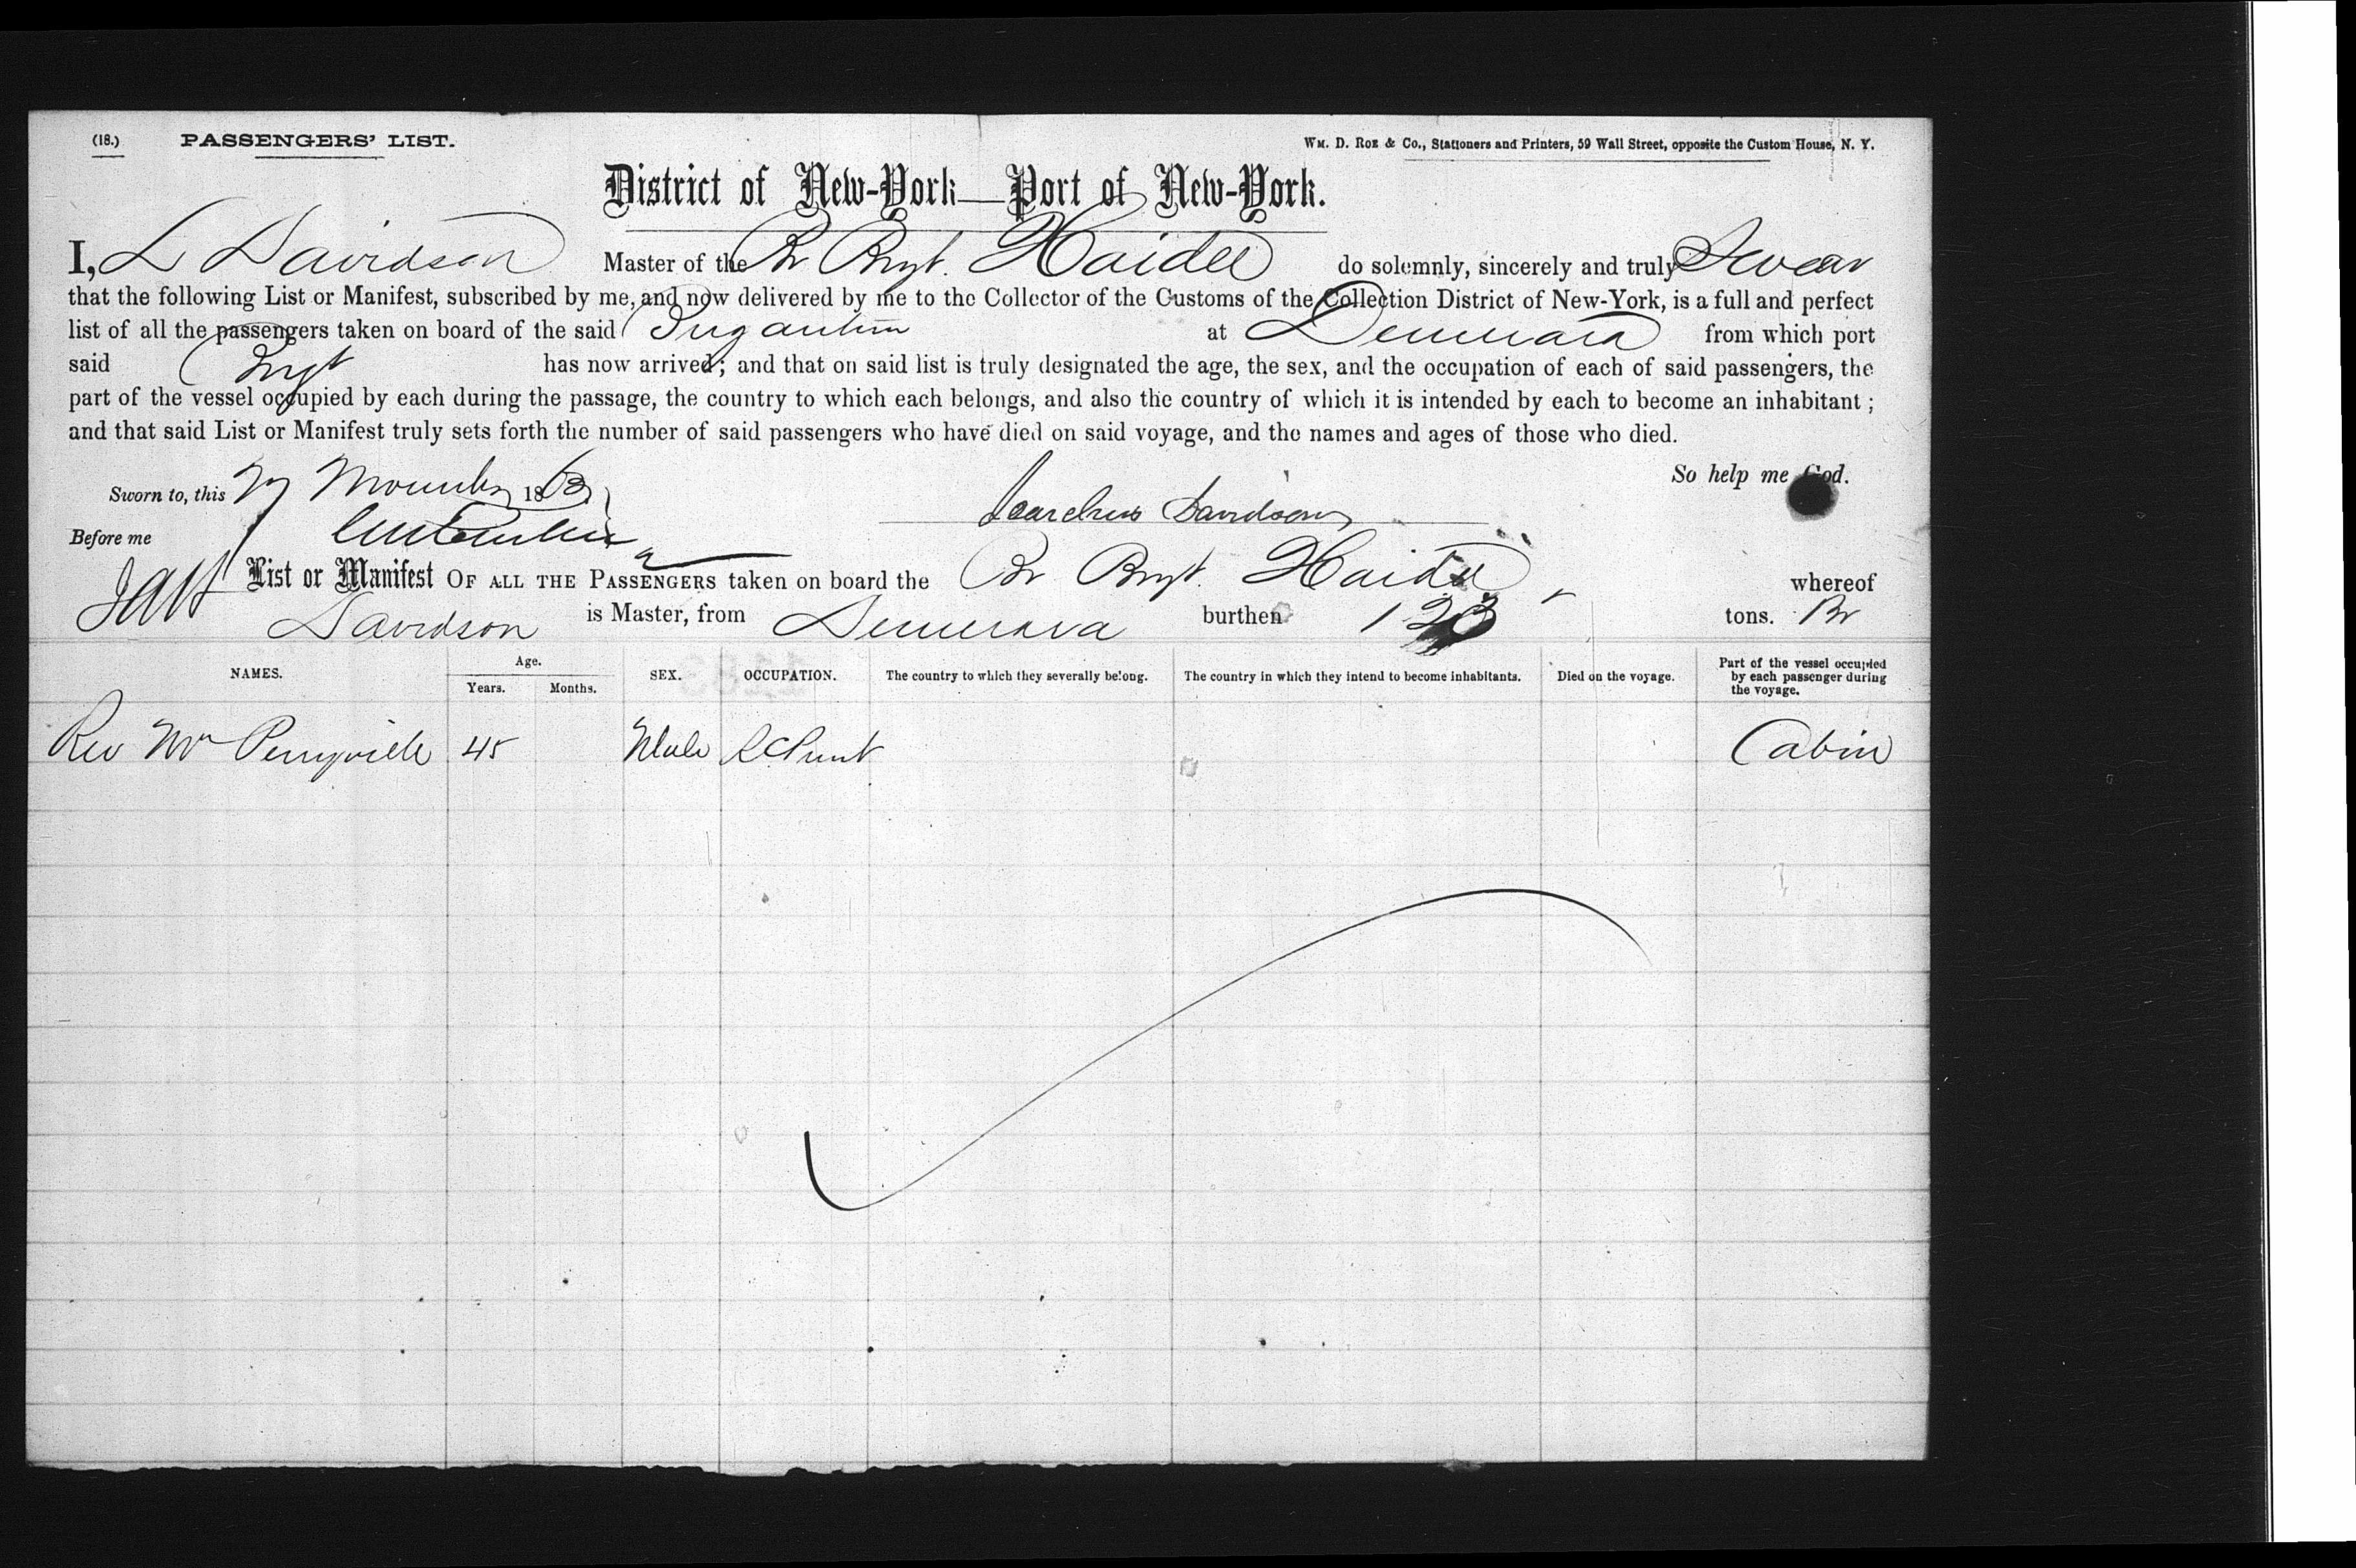 (18.) PASSENGERS' LIST. WM. D. ROE & Co., Stationers and Printers, 59 Wall Street, opposite the Custom House, N. Y.
District of New-York—Port of New-York.
I, L Davidson Master of the Br Brgt. Haidee do solemnly, sincerely and truly Swear
that the following List or Manifest, subscribed by me, and now delivered by me to the Collector of the Customs of the Collection District of New-York, is a full and perfect
list of all the passengers taken on board of the said Brigantine at Demerara from which port
said Brgt has now arrived; and that on said list is truly designated the age, the sex, and the occupation of each of said passengers, the
part of the vessel occupied by each during the passage, the country to which each belongs, and also the country of which it is intended by each to become an inhabitant;
and that said List or Manifest truly sets forth the number of said passengers who have died on said voyage, and the names and ages of those who died.
So help me God.
Sworn to, this November 1863
Davidson
Before me
List or Manifest OF ALL THE PASSENGERS taken on board the Br Brgt. Haidee whereof
Davidson is Master, from Demerara burthen 123 tons. Br
NAMES. Age. Years. Months. SEX. OCCUPATION. The country to which they severally belong. The country in which they intend to become inhabitants. Died on the voyage. Part of the vessel occupied by each passenger during the voyage.
Rev Mr Perryville 45 Male RC Priest Cabin